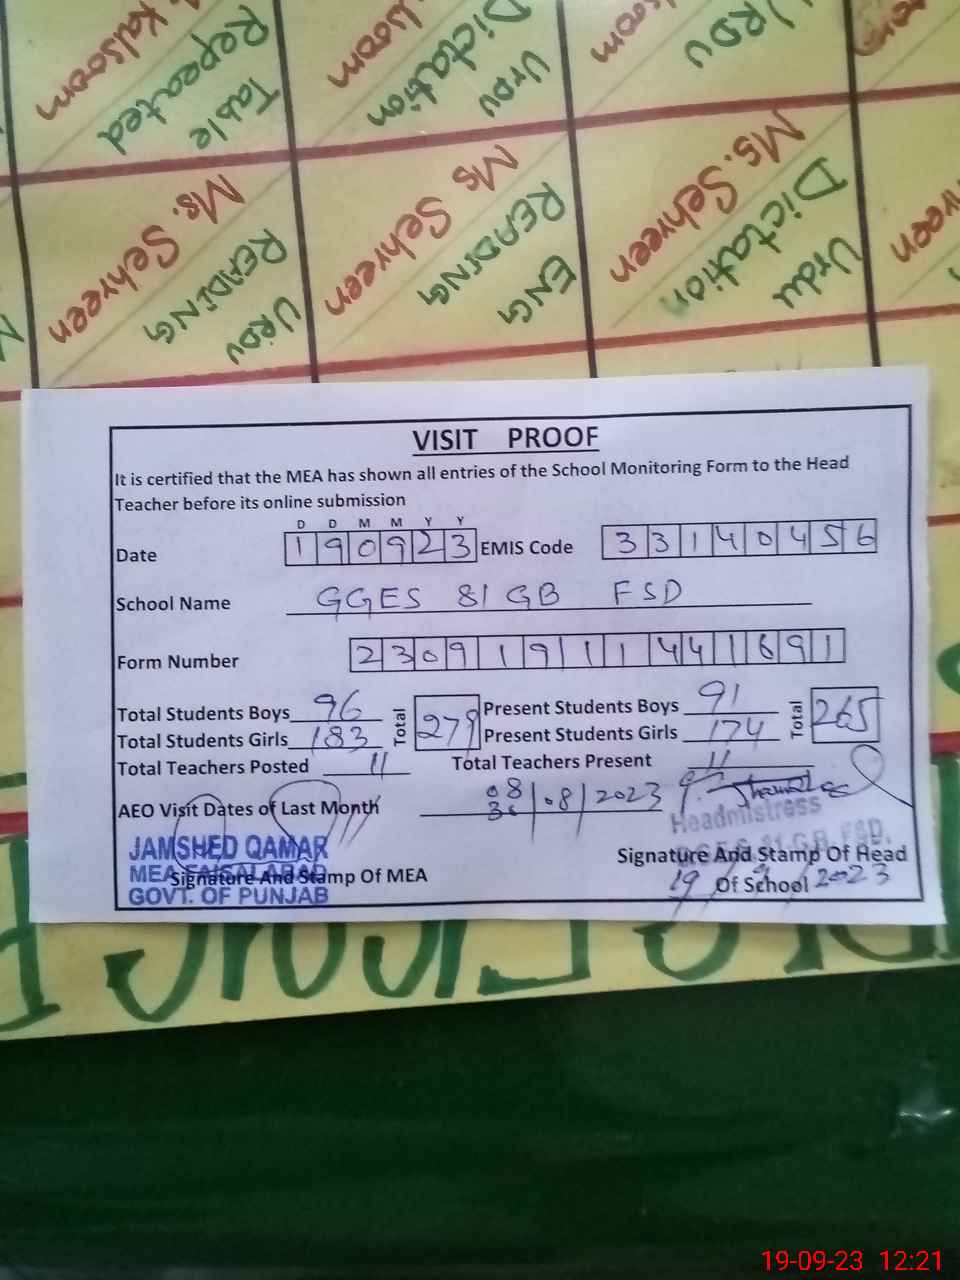 Kalsoom
Repeated
Table
Dictation
Urdu
URDU
Ms. Sehreen
READING
URDU
Ms Sehreen
READING
ENG
Ms. Sehreen
Dictation
Urdu
VISIT PROOF
It is certified that the MEA has shown all entries of the School Monitoring Form to the Head
Teacher before its online submission
D D M M Y Y
Date 190923 EMIS Code 33140456
School Name GGES 81 GB FSD
Form Number 230919111441691
Total Students Boys 96 Total 279 Present Students Boys 91 Total 265
Total Students Girls 183 Present Students Girls 174
Total Teachers Posted 11 Total Teachers Present 11
AEO Visit Dates of Last Month 08 30/08/2023
Headmistress
JAMSHED QAMAR
MEA FAISALABAD
GOVT. OF PUNJAB
Signature And Stamp Of MEA
Signature And Stamp Of Head
Of School
19/9/2023
19-09-23 12:21